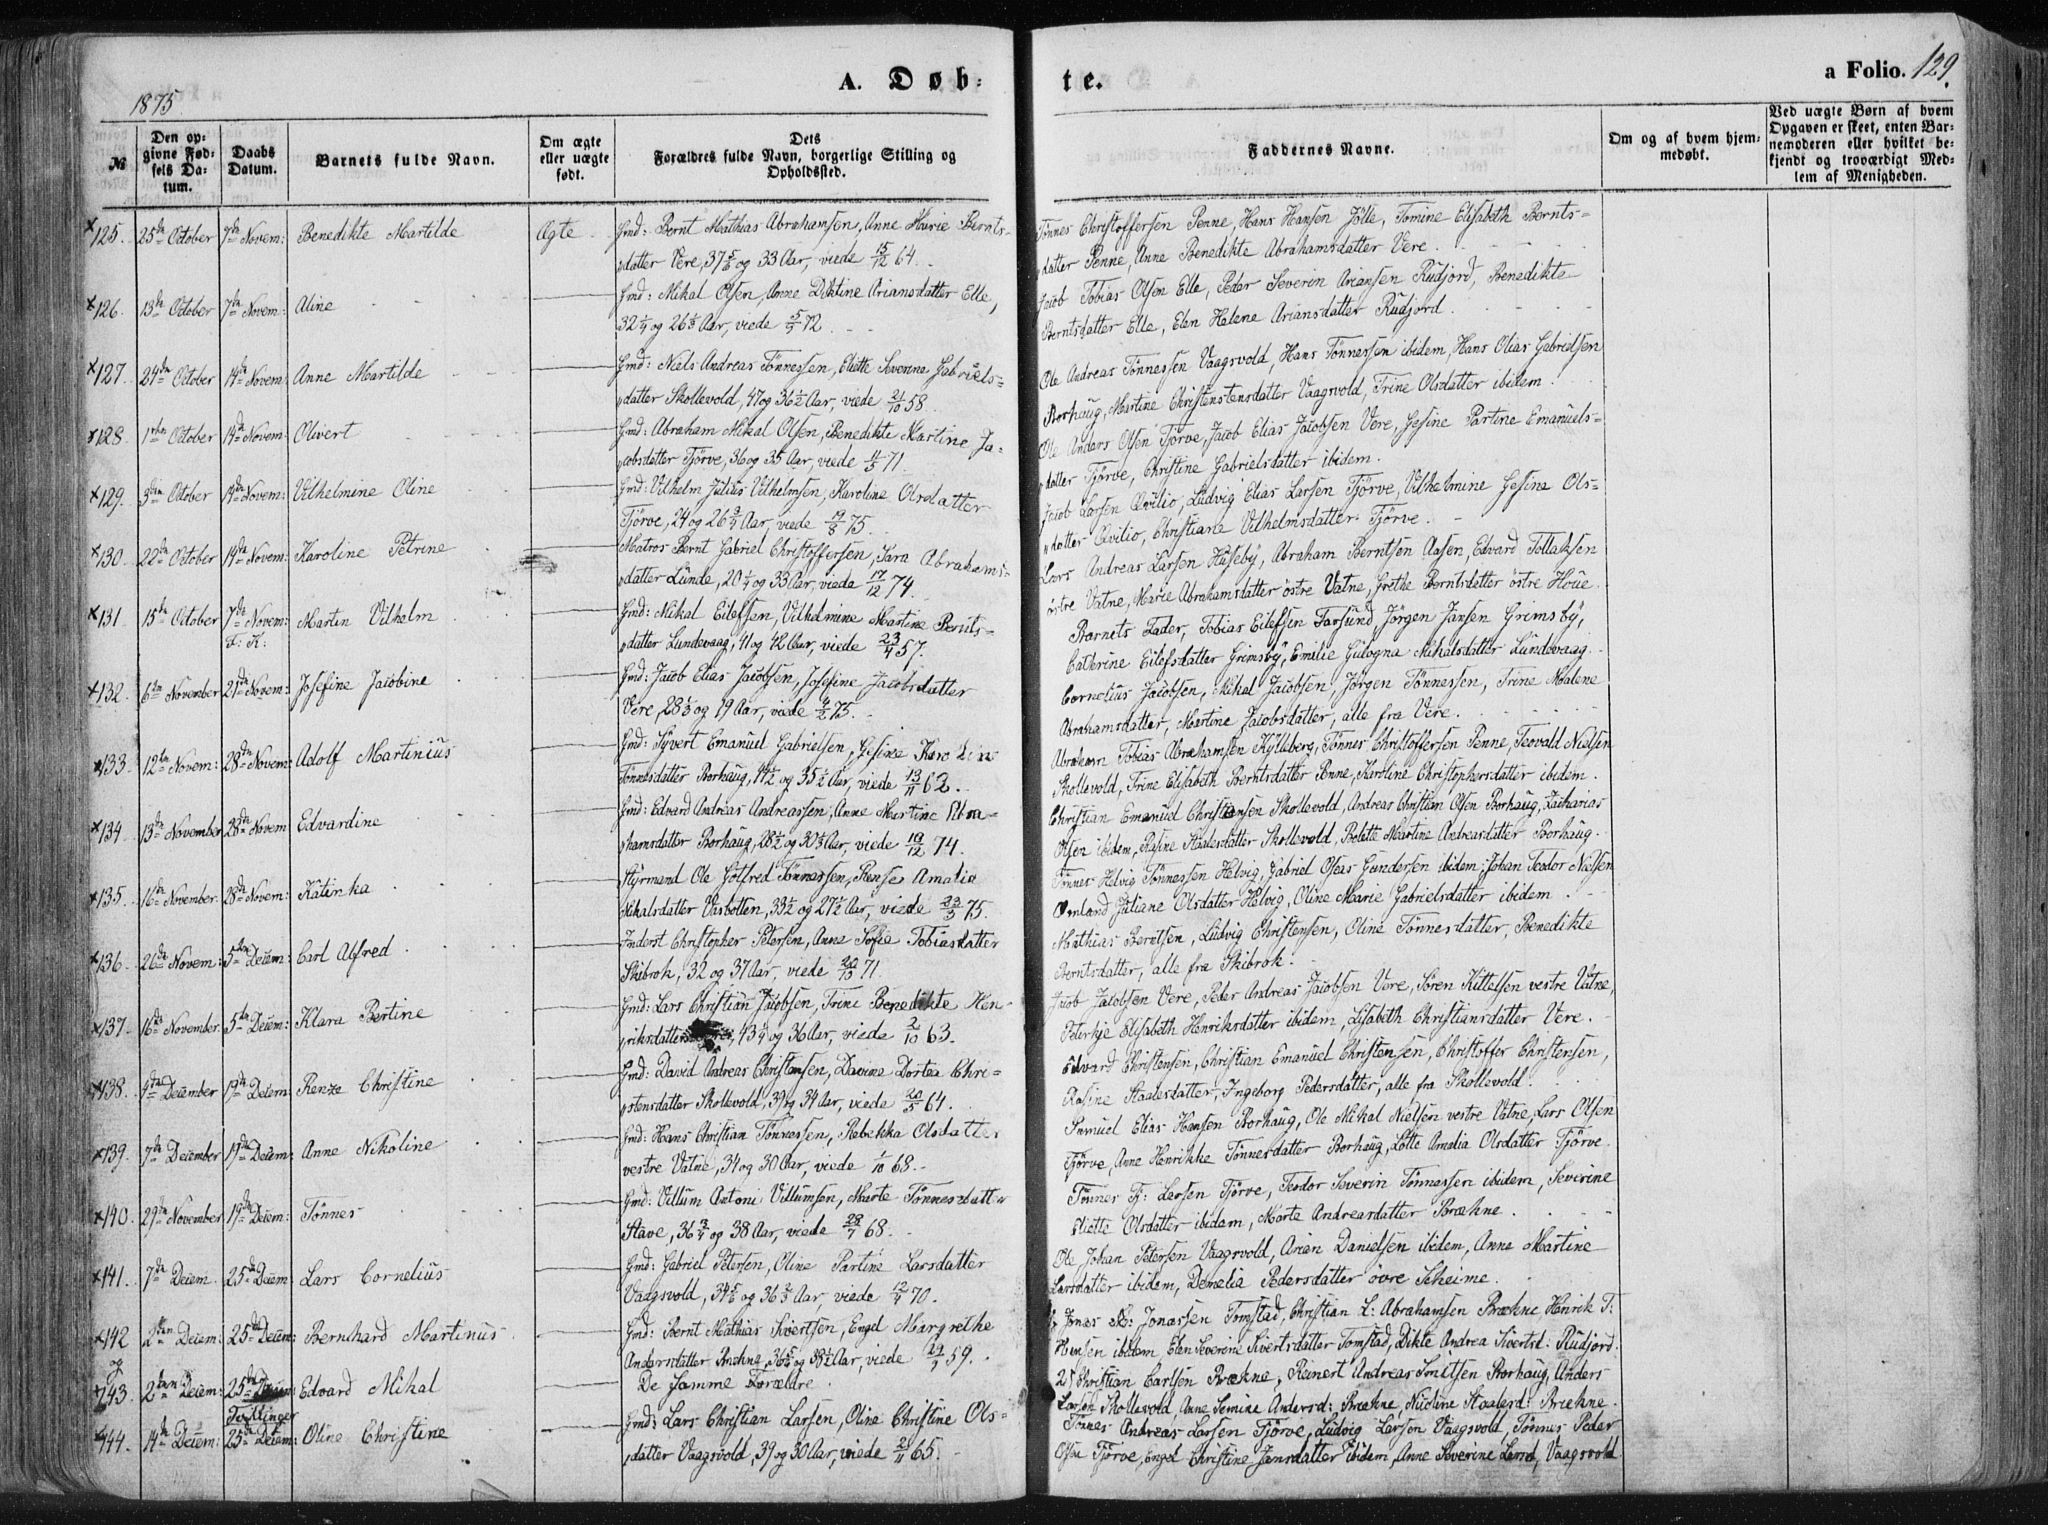 1875
A. Døb:
te.
a Folio. 129.
№
Den op-
givne Fød-
sels Da-
tum.
Daabs
Datum.
Barnets fulde Navn.
Om ægte
eller uægte
født.
Dets
Forældres fulde Navn, borgerlige Stilling og
Opholdssted.
Faddernes Navne.
Om og af hvem hjem-
medøbt.
Ved uægte Børn af hvem
Opgaven er skeet, enten Bar-
nemoderen eller hvilket be-
kjendt og troværdigt Med-
lem af Menigheden.
125. 25de October 7de Novem: Benedikte Martilde Ægte Gmd: Bernt Mathias Abrahamsen, Anne Marie Bernts-
datter Vere, 37 5/6 og 33 Aar, viede 15/12 64.
Tønnes Christoffersen Penne, Hans Hansen Jølle, Tomine Elisabeth Bernts-
datter Penne, Anne Benedikte Abrahamsdatter Vere.
126. 13de October 7de Novem: Aline Gmd: Mikal Olsen, Anne Diktine Ariansdatter Elle,
32 1/4 og 26 1/3 Aar, viede 72.
Jacob Tobias Olsen Elle, Peder Severin Ariansen Rudjord, Benedikte
Berntsdatter Elle, Elen Helene Ariansdatter Rudjord.
127. 24de October 14de Novem: Anne Martilde Gmd: Niels Andreas Tönnessen, Eliette Severine Gabriels-
datter Skollevold, 47 og 36 1/2 Aar, viede 21/10 58.
Ole Andreas Tönnessen Vaagsvold, Hans Tönnessen ibidem, Hans Olias Gabrielsen
Borhaug, Martine Christenstensdatter Vaagsvold, Trine Olsdatter ibidem.
128. 1ste October 14de Novem: Olivert Gmd: Abraham Mikal Olsen, Benedikte Martine Ja-
cobsdatter Tjörve, 36 og 35 Aar, viede 4/5 71.
Ole Anders Olsen Tjörve, Jacob Elias Jacobsen Vere, Gesine Partine Emanuels-
datter Tjörve, Christine Gabrielsdatter ibidem.
129. 3die October 14de Novem: Vilhelmine Oline Gmd: Vilhelm Julius Vilhelmsen, Karoline Olsdatter
Tjörve, 24 og 26 3/4 Aar, viede 19/8 75.
Jacob Larsen Qvilio, Ludvig Elias Larsen Tjörve, Vilhelmine Gesina Ols-
datter Qvilio, Christiane Vilhelmsdatter Tjörve.
130. 22de October 14de Novem: Karoline Petrine Matros Bernt Gabriel Christoffersen, Sara Abrahams-
datter Lunde, 20 1/4 og 33 Aar, viede 17/12 74.
Lars Andreas Larsen Huseby, Abraham Berntsen Aasen, Edvard Tollaksen
östre Vatne, Marie Abrahamsdatter östre Vatne, Grethe Berntsdatter östre Houe.
131. 15de October 7de Novem: F: K: Martin Vilhelm Gmd: Mikal Eilefsen, Vilhelmine Martine Bernts-
datter Lundevaag, 41 og 42 Aar, viede 23/4 57.
Barnets Fader, Tobias Eilefsen Farsund, Jörgen Jansen Grimsby,
Cathrine Eilefsdatter Grimsby, Emilie Gulogna Mikalsdatter Lundevaag.
132. 6te November 21de Novem: Josefine Jacobine Gmd: Jacob Elias Jacobsen, Josefine Jacobsdatter
Vere, 28 1/3 og 19 Aar, viede 75.
Cornelius Jacobsen, Mikal Jacobsen, Jörgen Tönnessen, Trine Malene
Abrahamsdatter, Martine Jacobsdatter, alle fra Vere.
133. 12te Novem: 28de Novem: Adolf Martinius Gmd: Syvert Emanuel Gabrielsen, Gesine Karoline
Tönnesdatter Borhaug, 44 1/2 og 35 1/2 Aar, viede 13/11 62.
Abraham Tobias Abrahamsen Kyllberg, Tönnes Christoffersen Penne, Teovald Nielsen
Skollevold, Trine Elisabeth Berntsdatter Penne, Karoline Christophersdatter ibidem.
134. 13de November 28de Novem Edvardine Gmd: Edvard Andreas Andreassen, Anne Martine Abra-
hamsdatter Borhaug, 28 1/2 og 30 1/2 Aar, viede 19/12 74.
Christian Emanuel Christensen Skollevold, Andreas Christian Olsen Borhaug, Zacharias
Olsen ibidem, Rasine Staalesdatter Skollevold, Bolette Martine Andreasdatter Borhaug.
135. 16de November 28de Novem: Katinka Styrmand Ole Gotfred Tönnessen, Rense Amalia
Mikalsdatter Vasbotten, 33 1/2 og 27 1/2 Aar, viede 23/3 75.
Tönnes Helvig Tönnessen Helvig, Gabriel Oseas Gundersen ibidem, Johan Teodor Nielsen
Omland, Juliane Olsdatter Helvig, Oline Marie Gabrielsdatter ibidem.
136. 26de Novem: 5te Decem: Carl Alfred Inderst Christopher Petersen, Anne Sofie Tobiasdatter
Skibrok, 32 og 37 Aar, viede 20/10 71.
Mathias Berntsen, Ludvig Christensen, Oline Tönnesdatter, Benedikte
Berntsdatter, alle fra Skibrok.
137. 16de November 5te Decem: Klara Bertine Gmd: Lars Christian Jacobsen, Trine Benedikte Hen-
riksdatter Vere, 43 1/4 og 36 Aar, viede 2/10 63.
Jacob Jacobsen Vere, Peder Andreas Jacobsen Vere, Sören Kittelsen vestre Vatne,
Peterkje Elisabeth Henriksdatter ibidem, Lisabeth Christiansdatter Vere.
138. 4de December 19de Decem: Renze Christine Gmd: David Andreas Christensen, Davine Dortea Chri-
stensdatter Skollevold, 39 og 34 Aar, viede 20/5 64.
Edvard Christensen, Christian Emanuel Christensen, Christoffer Christensen,
Rasine Staalesdatter, Ingeborg Pedersdatter, alle fra Skollevold.
139. 7de December 19de Decem: Anne Nikoline Gmd: Hans Christian Tönnessen, Rebekka Olsdatter
vestre Vatne, 34 og 30 Aar, viede 1/10 68.
Samuel Elias Hansen Borhaug, Ole Mikal Nielsen vestre Vatne, Lars Olsen
Tjörve, Anne Henrikke Tönnesdatter Borhaug, Lotte Amalia Olsdatter Tjörve.
140. 29de November 19de Decem: Tönnes Gmd: Villum Antoni Villumsen, Marte Tönnesdatter
Stave, 36 3/4 og 38 Aar, viede 28/7 68.
Tönnes Fj: Larsen Tjörve, Teodor Severin Tönnessen ibidem, Severine
Eliette Olsdatter ibidem, Marte Andreasdatter Brækne.
141. 7de Decem. 25de Decem: Lars Cornelius Gmd: Gabriel Petersen, Oline Partine Larsdatter
Vaagsvold, 34 5/6 og 36 2/3 Aar, viede 12/4 70.
Ole Johan Petersen Vaagsvold, Arian Danielsen ibidem, Anne Martine
Larsdatter ibidem, Demelia Pedersdatter övre Skeime.
142 2den Decem: 25de Decem: Bernhard Martinus Gmd: Bernt Mathias Sivertsen, Engel Margrethe
Andersdatter Brækne, 36 5/6 og 38 1/2 Aar, viede 59.
Jonas M: Jonassen Tomstad, Christian L: Abrahamsen Brækne Henrik T:
Hansen ibidem Elen Severine Sivertsdatter Tomstad, Dikte Andrea Sivertsd: Rudjord.
143. 2den Decem: 25de Decem: Tvillinger Edvard Mikal De samme Forældre.
Christian Carlsen Brækne, Reinert Andreas Smitsen Borhaug, Anders
Larsen Skollevold, Anne Semine Andersd: Brækne, Nicoline Staalesd: Brækne.
144. 14de Decem: 25de Decem: Oline Christine Gmd: Lars Christian Larsen, Oline Christine Ols-
datter Vaagsvold, 39 og 30 Aar, viede 2/11 65.
Tönnes Andreas Larsen Tjörve, Ludvig Larsen Vaagsvold, Tönnes Peder
Olsen Tjörve, Engel Christine Jansdatter ibidem, Anne Severine Larsd, Vaagsvold